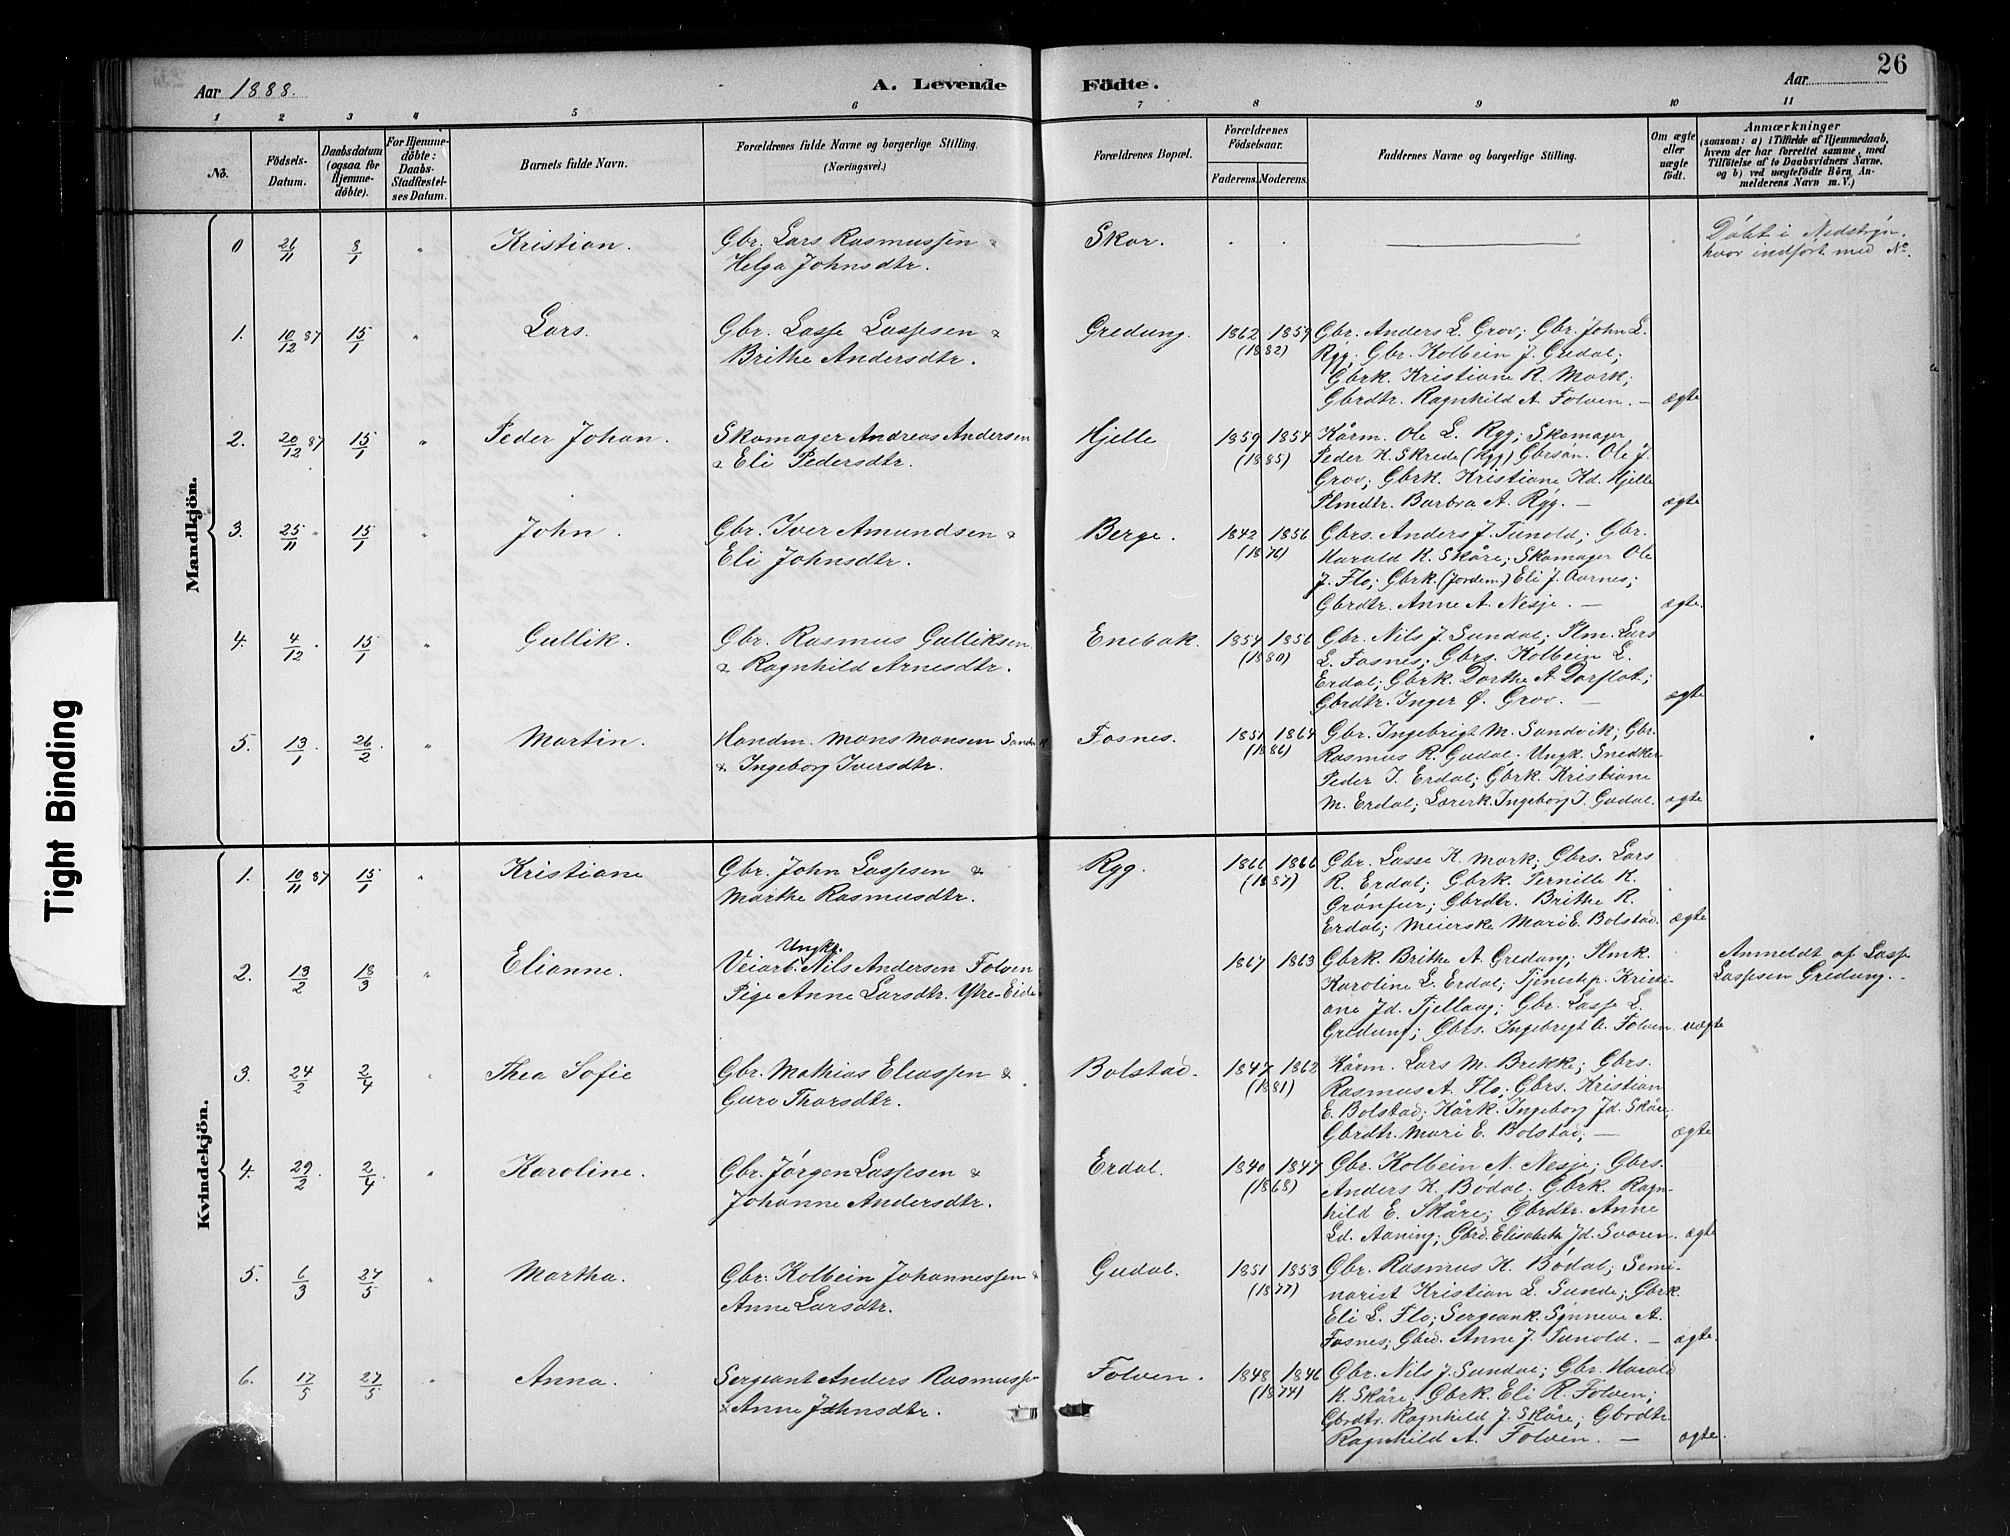 Aar 1888.
A. Levende Födte.
Aar
26
1 2 3 4 5 6 7 8 9 10 11
No.
Födsels-Datum.
Daabsdatum (ogsaa for Hjemme-döbte).
For Hjemme-döbte: Daabs-Stadfæstel-ses Datum.
Barnets fulde Navn.
Forældrenes fulde Navne og borgerlige Stilling.
(Næringsvei.)
Forældrenes Bopæl.
Forældrenes Födselsaar.
Faderens. Moderens.
Faddernes Navne og borgerlige Stilling.
Om ægte eller uægte födt.
Anmærkninger
(saasom: a) i Tilfælde af Hjemmedaab,
hvem der har forrettet samme, med
Tilföielse af to Daabsvidners Navne.
og b) ved uægtefödte Börn An-
melderens Navn m. V.)
Mandkjön.
0 26/11 8/1 " Kristian. Gbr. Lars Rasmussen &
Helga Johnsdtr.
Skor.
Döbt i Nedstryn,
hvor indført med No.
1. 10/12 87 15/1 " Lars. Gbr. Lasse Lassesen &
Brithe Andersdtr.
Gredung. 1862 1859
(1882)
Gbr. Anders L. Grov; Gbr. John L.
Ryg; Gbr. Kolbein J. Gredal;
Gbrk. Kristiane R. Mork;
Gbrdtr. Ragnhild A. Folven. — ægte
2. 20/12 87 15/1 " Peder Johan. Skomager Andreas Andersen
& Eli Pedersdtr.
Hjelle 1859 1854
(1885)
Kårm. Ole L. Ryg; Skomager
Peder K. Skrede (Ryg) Gbrsøn. Ole J.
Grov; Gbrk. Kristiane Kd. Hjelle
Plmdtr. Barbra A. Ryg. — ægte
3. 25/11 " 15/1 John. Gbr. Iver Amundsen &
Eli Johnsdtr.
Berge. 1842 1856
(1876)
Gbrs. Anders J. Tunold; Gbr.
Harald K. Skåre; Skomager Ole
J. Flo; Gbrk. (Jordem.) Eli J. Aarnes;
Gbrdtr. Anne A. Nesje. — ægte.
4. 4/12 15/1 " Gullik. Gbr. Rasmus Gulliksen
& Ragnhild Arnesdtr.
Enebak. 1854 1856
(1880)
Gbr. Nils J. Sundal; Plm. Lars
L. Fosnes; Gbrs. Kolbein L.
Erdal; Gbrk. Dorthe A. Dorflot;
Gbrdtr. Inger Ø. Grov. — ægte
5. 13/1 26/2 " Martin. Handm. Mons Monsen
& Ingeborg Iversdtr.
Fosnes. 1851 1864
(1886)
Gbr. Ingebrigt M. Sandvik; Gbr.
Rasmus R. Gudal; Ungk. Snedker
Peder I. Erdal; Gbrk. Kristiane
M. Erdal; Lærerk. Ingeborg J. Gudal. ægte
Kvindekjön.
1. 10/11 87 15/1 " Kristiane Gbr. John Lassesen &
Marthe Rasmusdtr.
Ryg. 1866 1866
(1887)
Gbr. Lasse K. Mork; Gbrs. Lars
R. Erdal; Gbrk. Pernille K.
Grønfur; Gbrdtr. Brithe R.
Erdal; Meierske Mari E. Bolstad. ægte
2. 13/2 18/3 " Elianne. Ungk.
Veiarb. Nils Andersen Folven
Pige Anne Larsdtr. Ytre-Eide
1867 1863
Gbrk. Brithe A. Gredung; Plmk.
Karoline L. Erdal; Tjenestp. Kristi-
ane Jd. Tjellaug; Gbr. Lasse L.
Gredung; Gbrs. Ingebrigt A. Folven. uægte
Anmeldt af Lasse
Lassesen Gredung.
3. 24/2 2/4 " Thea Sofie Gbr. Mathias Eliassen &
Guro Thorsdtr.
Bolstad. 1847 1862
(1881)
Kårm. Lars M. Brekke; Gbrs.
Rasmus A. Flo; Gbrs. Kristian
E. Bolstad; Kårk. Ingeborg Jd. Skåre;
Gbrdtr. Mari E. Bolstad; — ægte
4. 29/2 2/4 " Karoline. Gbr. Jørgen Lassesen &
Johanne Andersdtr.
Erdal. 1840 1847
(1868)
Gbr. Kolbein N. Nesje; Gbrs.
Anders K. Bødal; Gbrk. Ragn-
hild E. Skåre; Gbrdtr. Anne
Ld. Aaning; Gbrd. Elisabeth Jd. Svoren. ægte
5. 6/3 27/5 " Martha. Gbr. Kolbein Johannessen &
Anne Larsdtr.
Gudal. 1851 1853
(1877)
Gbr. Rasmus K. Bødal; Semi-
narist Kristian L. Sunde; Gbrk.
Eli L. Flo; Sergeank. Sønneve A.
Fosnes; Gbrd. Anne J. Tunold. — ægte.
6. 17/5 27/5 " Anna. Sergeant Anders Rasmussen
& Anne Johnsdtr.
Folven. 1848 1846
(1874)
Gbr. Nils J. Sundal; Gbr. Harald
K. Skåre; Gbrk. Eli R. Folven;
Gbrdtr. Ragnhild J. Skåre; Gbrdtr.
Ragnhild A. Folven. — ægte.
Tight Binding